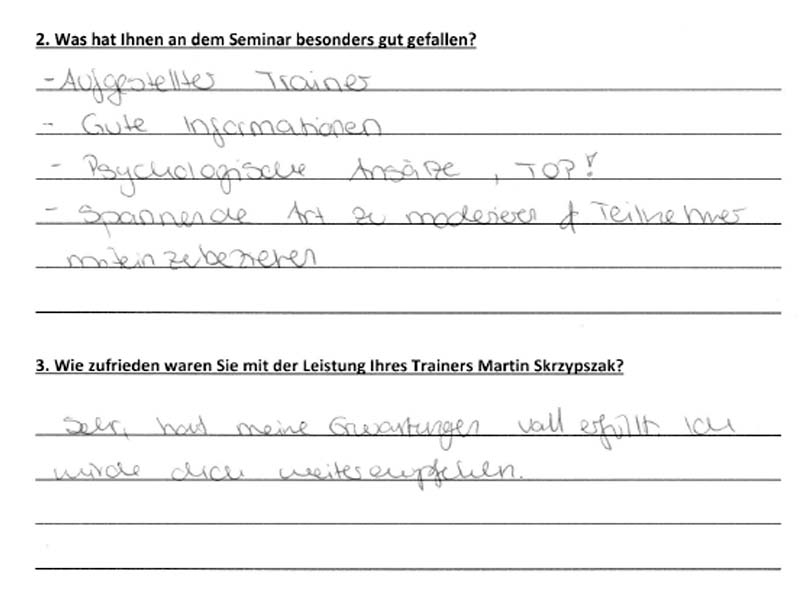 2. Was hat Ihnen an dem Seminar besonders gut gefallen?
- Aufgestellter Trainer
- Gute Informationen
- Psychologische Ansätze, TOP!
- Spannende Art zu moderieren & Teilnehmer
miteinzubeziehen
3. Wie zufrieden waren Sie mit der Leistung Ihres Trainers Martin Skrzypszak?
Sehr, hast meine Erwartungen voll erfüllt. Ich
würde dich weiterempfehlen.